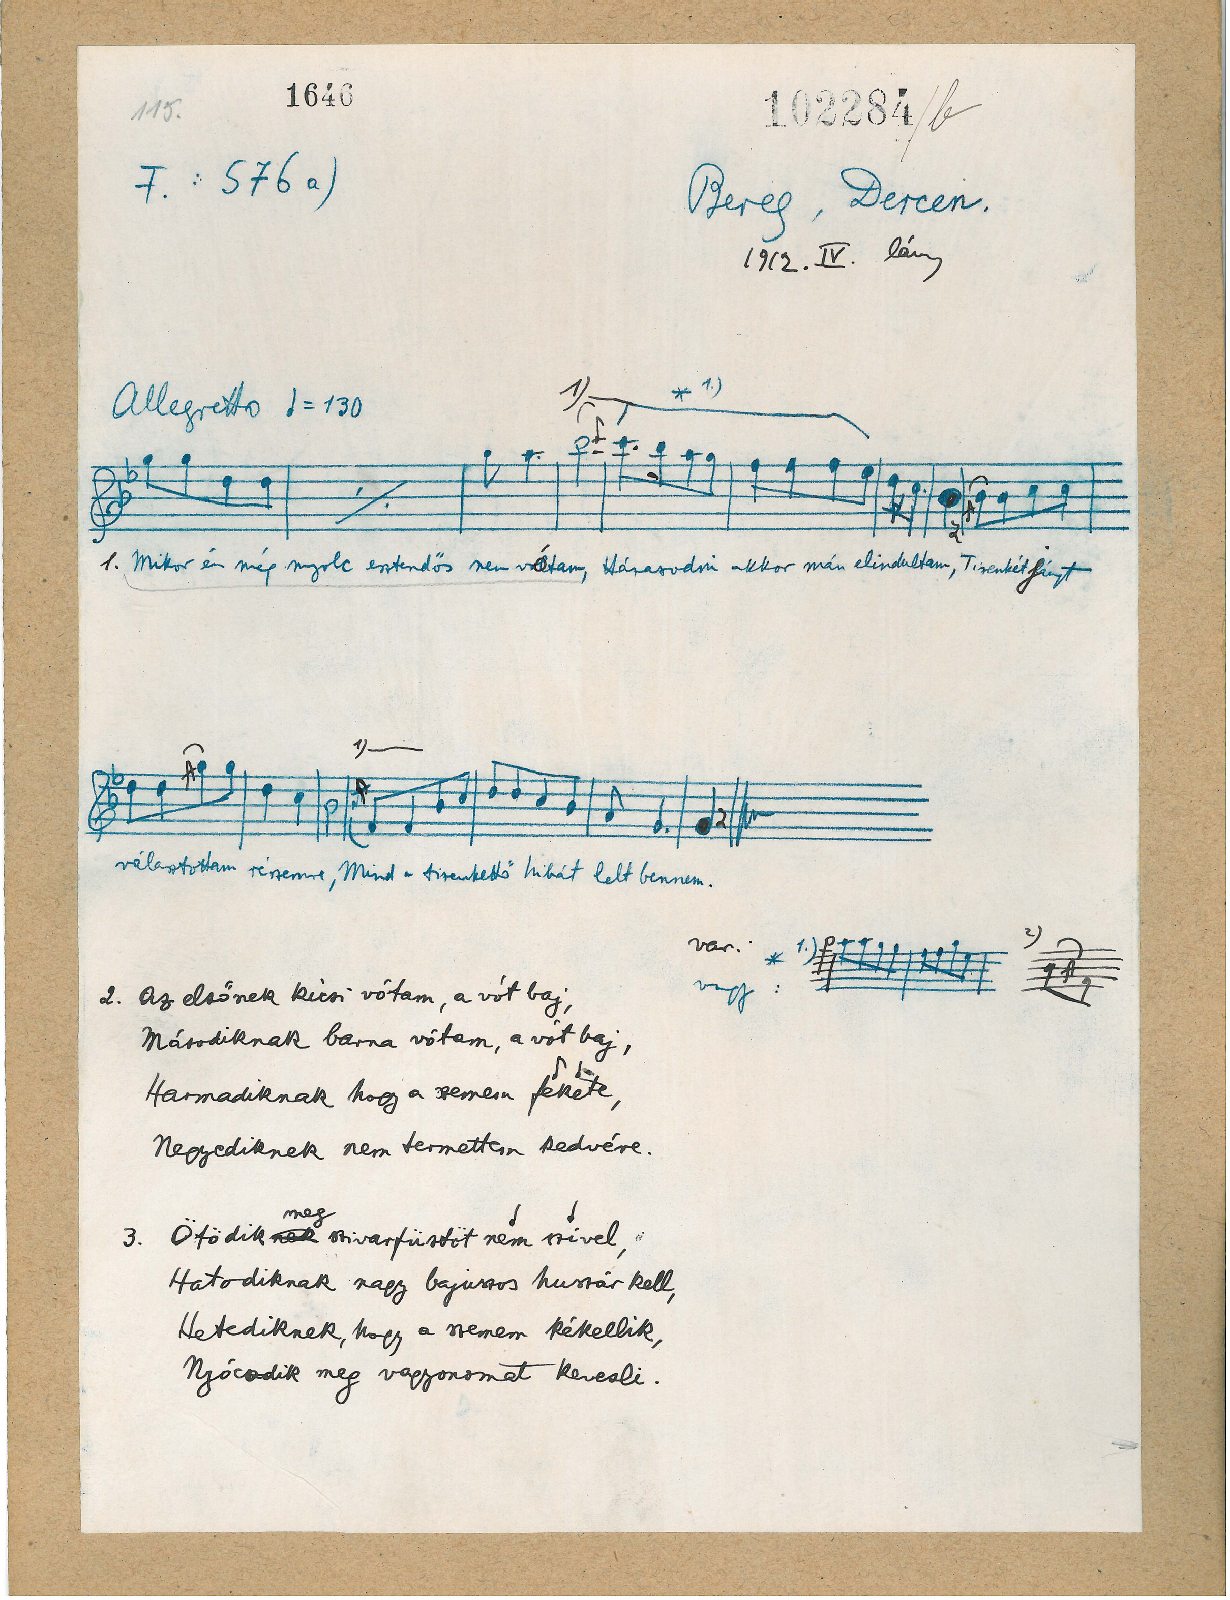 115.
1646
102284/b
F. : 576 a)
Bereg, Dercen.
1912. IV. lány
Allegretto ♩=130
1) * 1.)
1. Mikor én még nyolc esztendős nem vótam, Házasodni akkor mán elindultam, Tizenkét lányt
1)
választottam részemre, Mind a tizenkettő hibát lelt bennem.
var.:
* 1.) 2)
vagy :
2. Az elsőnek kicsi vótam, a vót baj,
Másodiknak barna vótam, a vót baj,
Harmadiknak hogy a szemem fekete,
Negyediknek nem termettem kedvére.
meg
3. Ötödik nek szivarfüstöt nem szível,
Hatodiknak nagy bajuszos huszár kell,
Hetediknek, hogy a szemem kékellik,
Nyócadik meg vagyonomat kevesli.